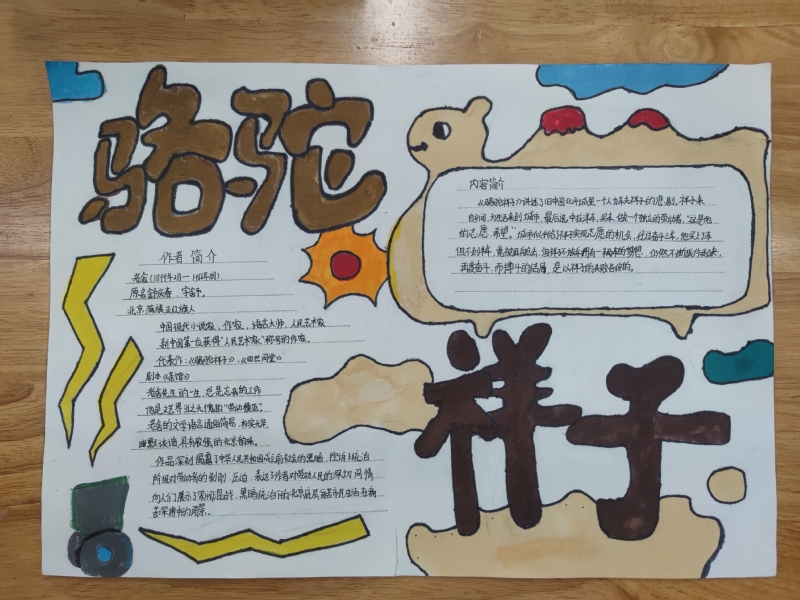 骆驼
作者 简介
老舍(1899年2月—1966年8月)
原名舒庆春、字舍予。
北京 满族正红旗人
中国现代小说家，作家，语言大师、人民艺术家
新中国第一位获得"人民艺术家"称号的作家。
代表作：《骆驼祥子》、《四世同堂》
剧本《茶馆》
老舍先生的一生，总是忘我的工作
他是文艺界当之无愧的"劳动模范"。
老舍的文学语言通俗简易，朴实无华，
幽默诙谐，具有较强的北京韵味。
作品深刻揭露了中华人民共和国成立前社会的黑暗，控诉了统治
阶级对劳动者的剥削、压迫，表达了作者对劳动人民的深切同情
向人们展示了军阀混战、黑暗统治下的北京底层贫苦市民生活在痛
苦深渊中的图景。
内容简介
《骆驼祥子》讲述了旧中国北平城里一个人力车夫祥子的悲剧。祥子来
自乡间，为生活来到城市，最后选中拉洋车，买车，做一个独立的劳动者，"这是他
的志愿、希望"。城市似乎给了祥子实现志愿的机会，经过奋斗三年，他买上了车
但不到半年，竟被
再度奋斗，而搏斗的结局，是以祥子的失败告终的。
祥子